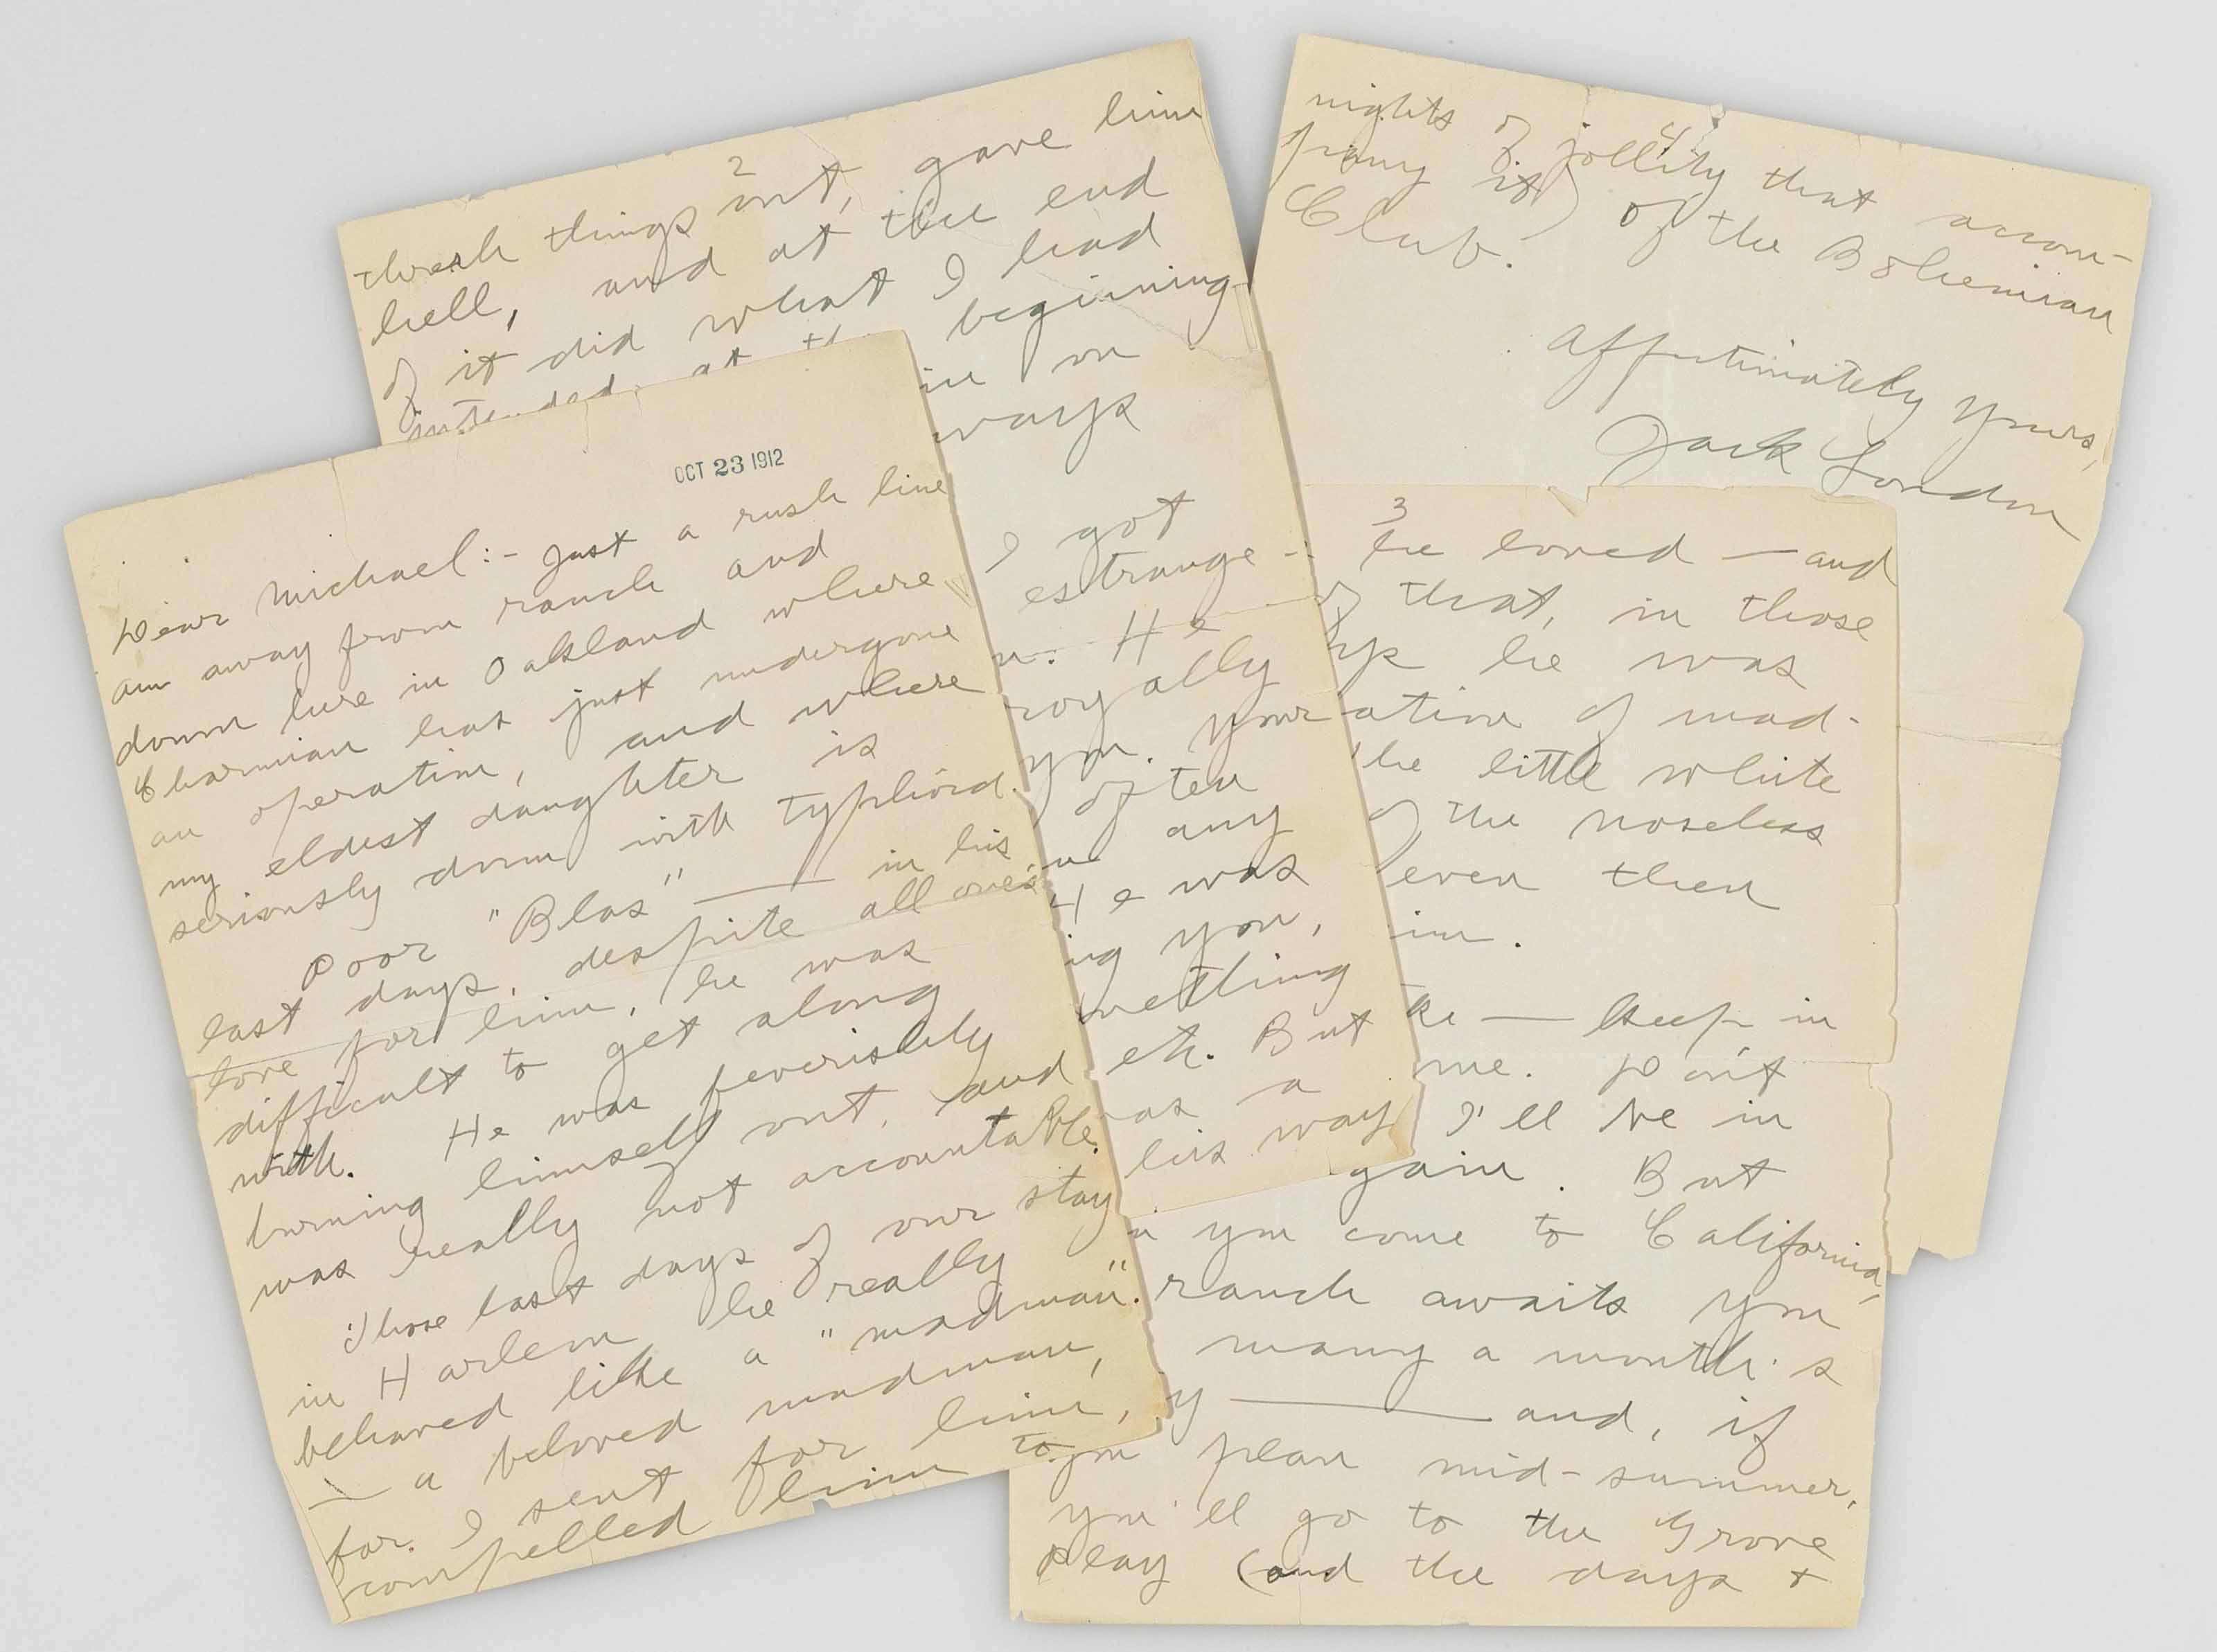 OCT 23 1912
Dear Michael:- Just a rush line
am away from ranch and
down here in Oakland where
Charmian has just undergone
an operation, and where
my eldest daughter is
seriously down with typhoid.
Poor "Blas" — in his
last days, despite all ones
love for him, he was
difficult to get along
with. He was feverishly
burning himself out, and
was really not accountable.
Those last days of our stay
in Harlem he really
behaved like a "madman".
— a beloved madman,
for I sent for him,
compelled him to
2
thresh things out, gave him
hell, and at the end
of it did what I had
intended at the beginning
on
ways
I got
estrange-
He
royally
you. Your
often
any
He was
ing you,
etc. But
as a
his way
3
he loved — and
of that, in those
he was
of mad-
the little white
of the noseless
even then
— keep in
me. Don't
I'll be in
But
you come to California,
ranch awaits you
many a month's
— and, if
you plan mid-summer,
you'll go to the Grove
Play (and the days +
4
nights of jollity that accom-
pany it) of the Bohemian
Club.
Affectionately yours,
Jack London